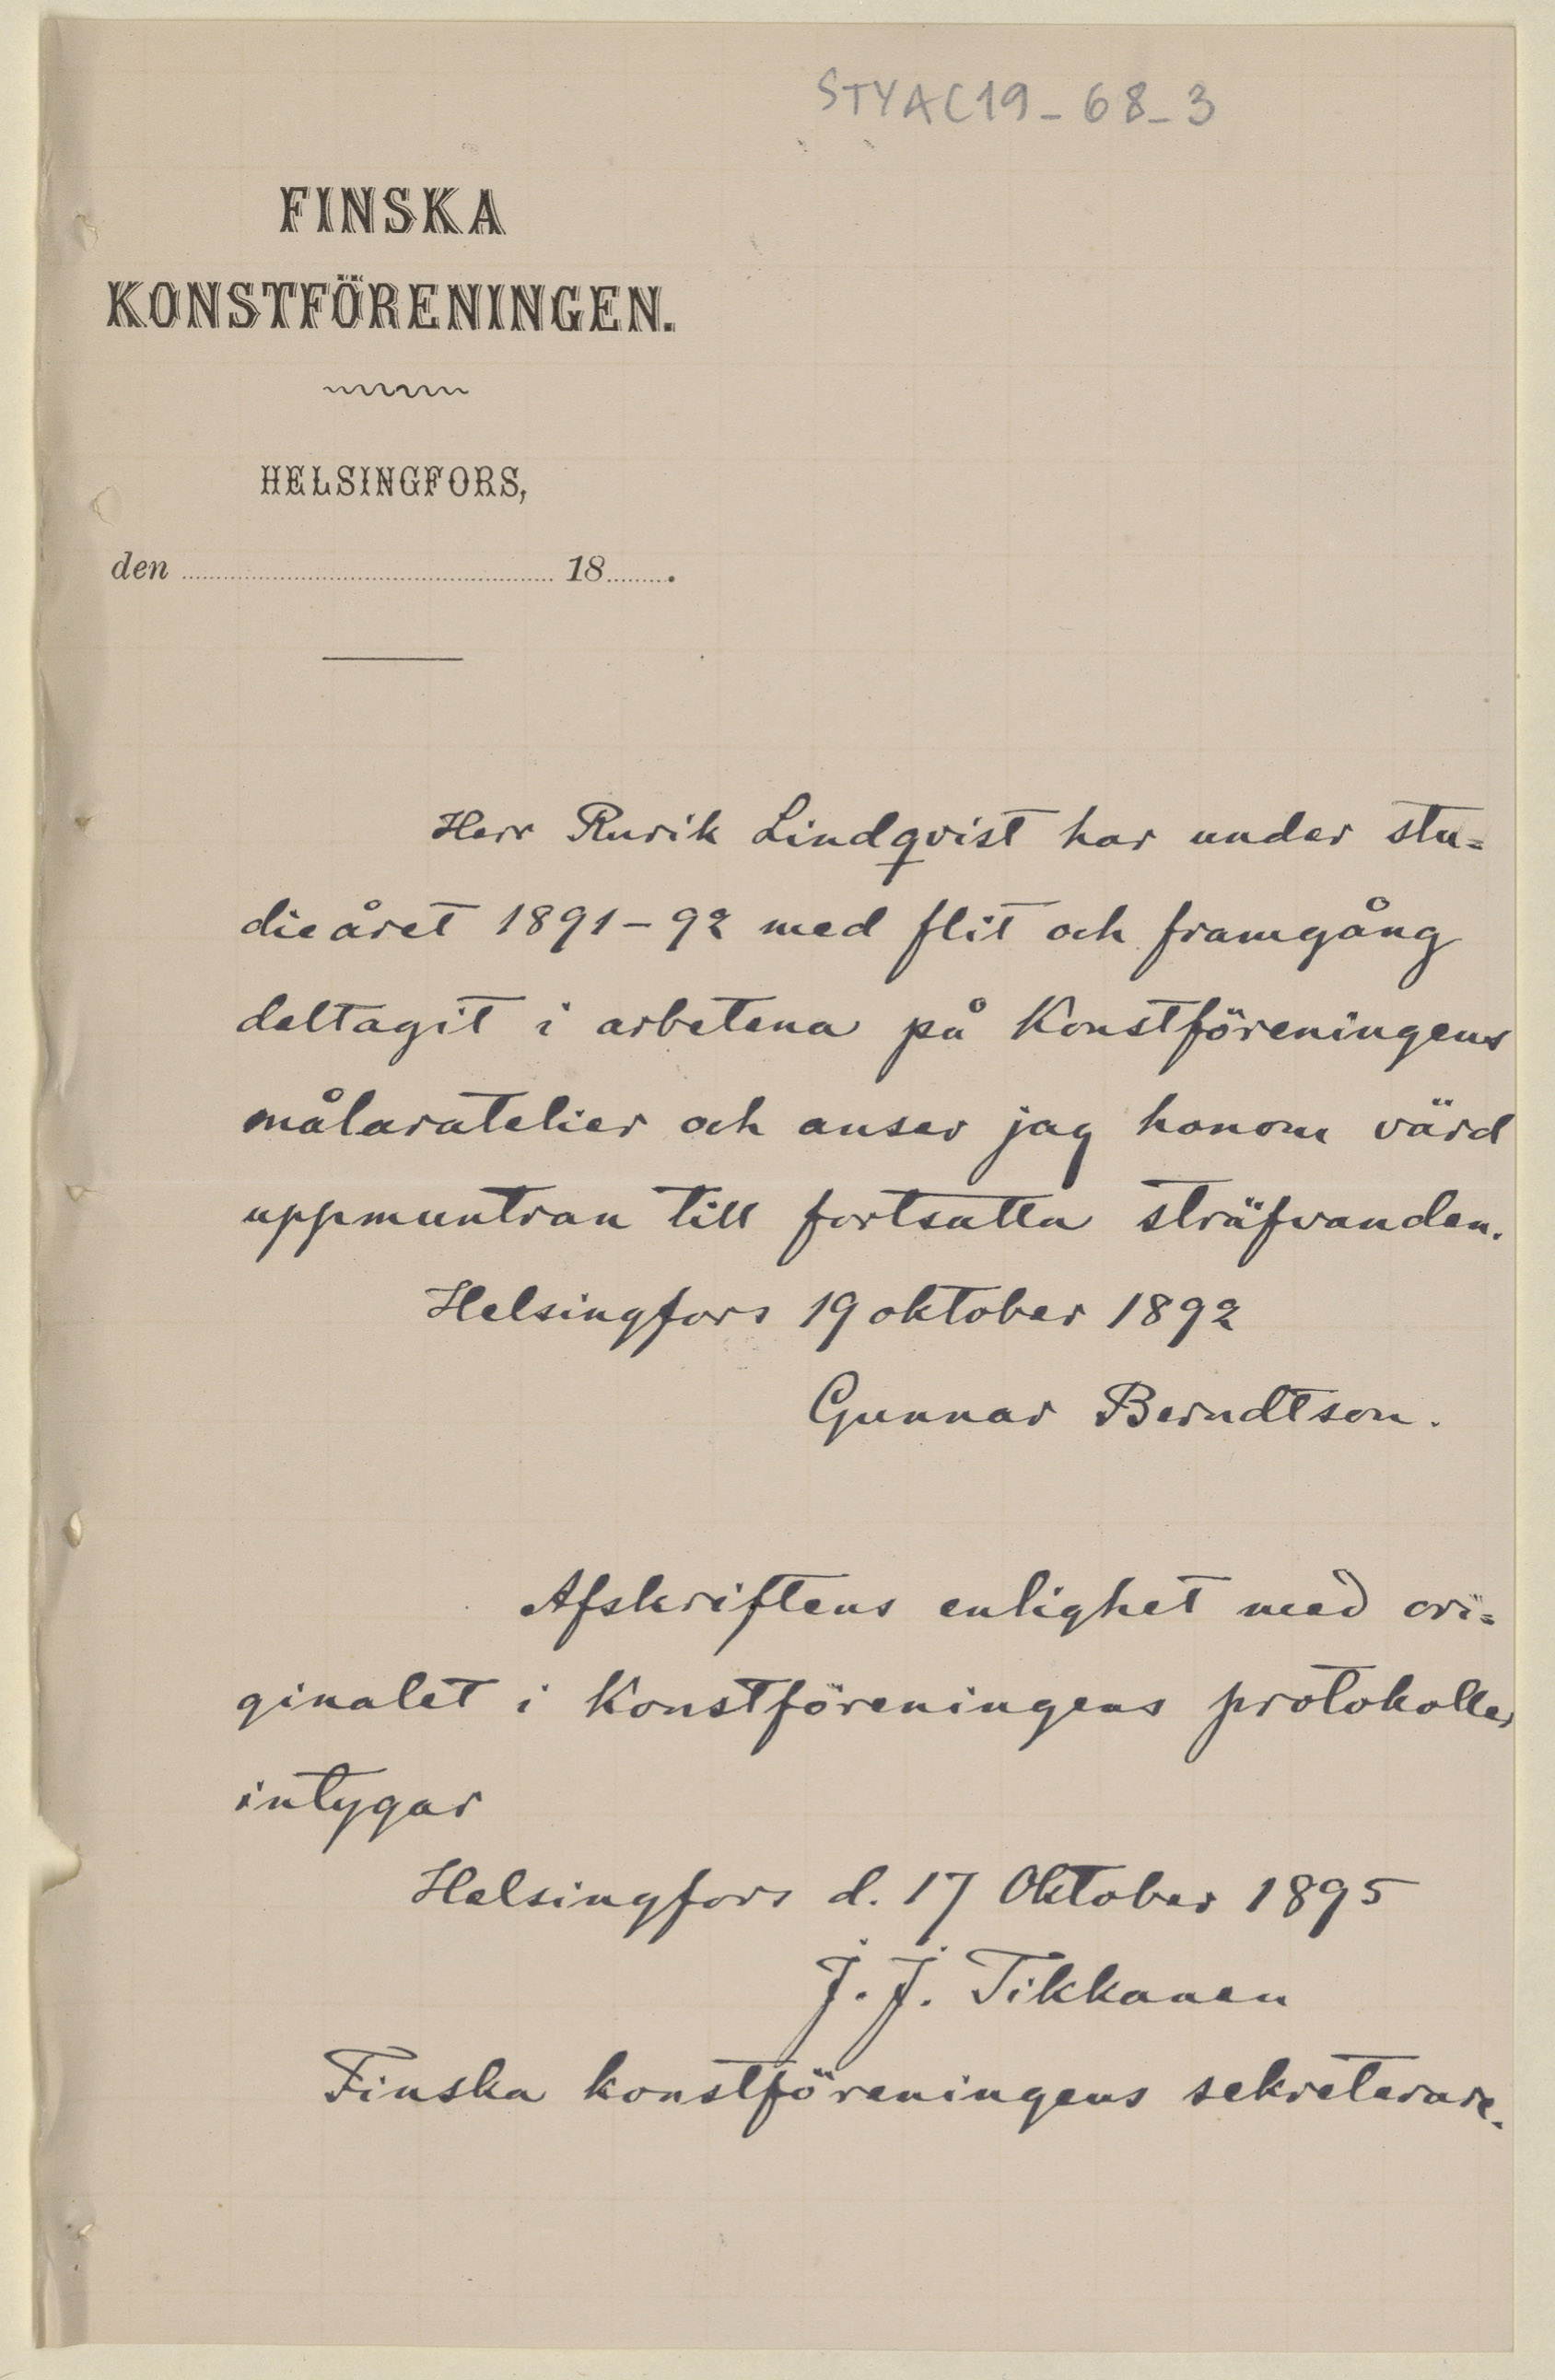 STYAC19_68_3
FINSKA
KONSTFÖRENINGEN.
HELSINGFORS,
den .......... 18.....
Herr Rurik Lindqvist har under stu=
dieåret 1891-92 med flit och framgång
deltagit i arbetena på Konstföreningens
målaratelier och anser jag honom värd
uppmuntran till fortsatta sträfvanden.
Helsingfors 19 oktober 1892
Gunnar Berndtson.
Afskriftens enlighet med ori=
ginalet i Konstföreningens protokoller
intygar
Helsingfors d. 17 Oktober 1895
J. J. Tikkanen
Finska konstföreningens sekreterare.